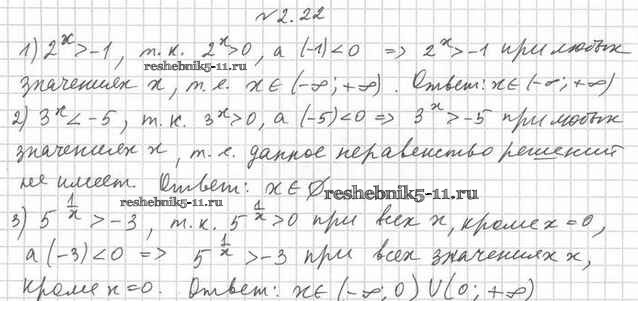 № 2.22
1) 2^x > -1, т.к. 2^x > 0, а (-1) < 0 => 2^x > -1 при любых
reshebnik5-11.ru
значениях x, т.е. x ∈ (-∞; +∞). Ответ: x ∈ (-∞; +∞)
2) 3^x < -5, т.к. 3^x > 0, а (-5) < 0 => 3^x > -5 при любых
значениях x, т.е. данное неравенство решений
не имеет. Ответ: x ∈ ∅
reshebnik5-11.ru
reshebnik5-11.ru
3) 5^(1/x) > -3, т.к. 5^(1/x) > 0 при всех x, кроме x = 0,
а (-3) < 0 => 5^(1/x) > -3 при всех значениях x,
кроме x = 0. Ответ: x ∈ (-∞; 0) U (0; +∞)